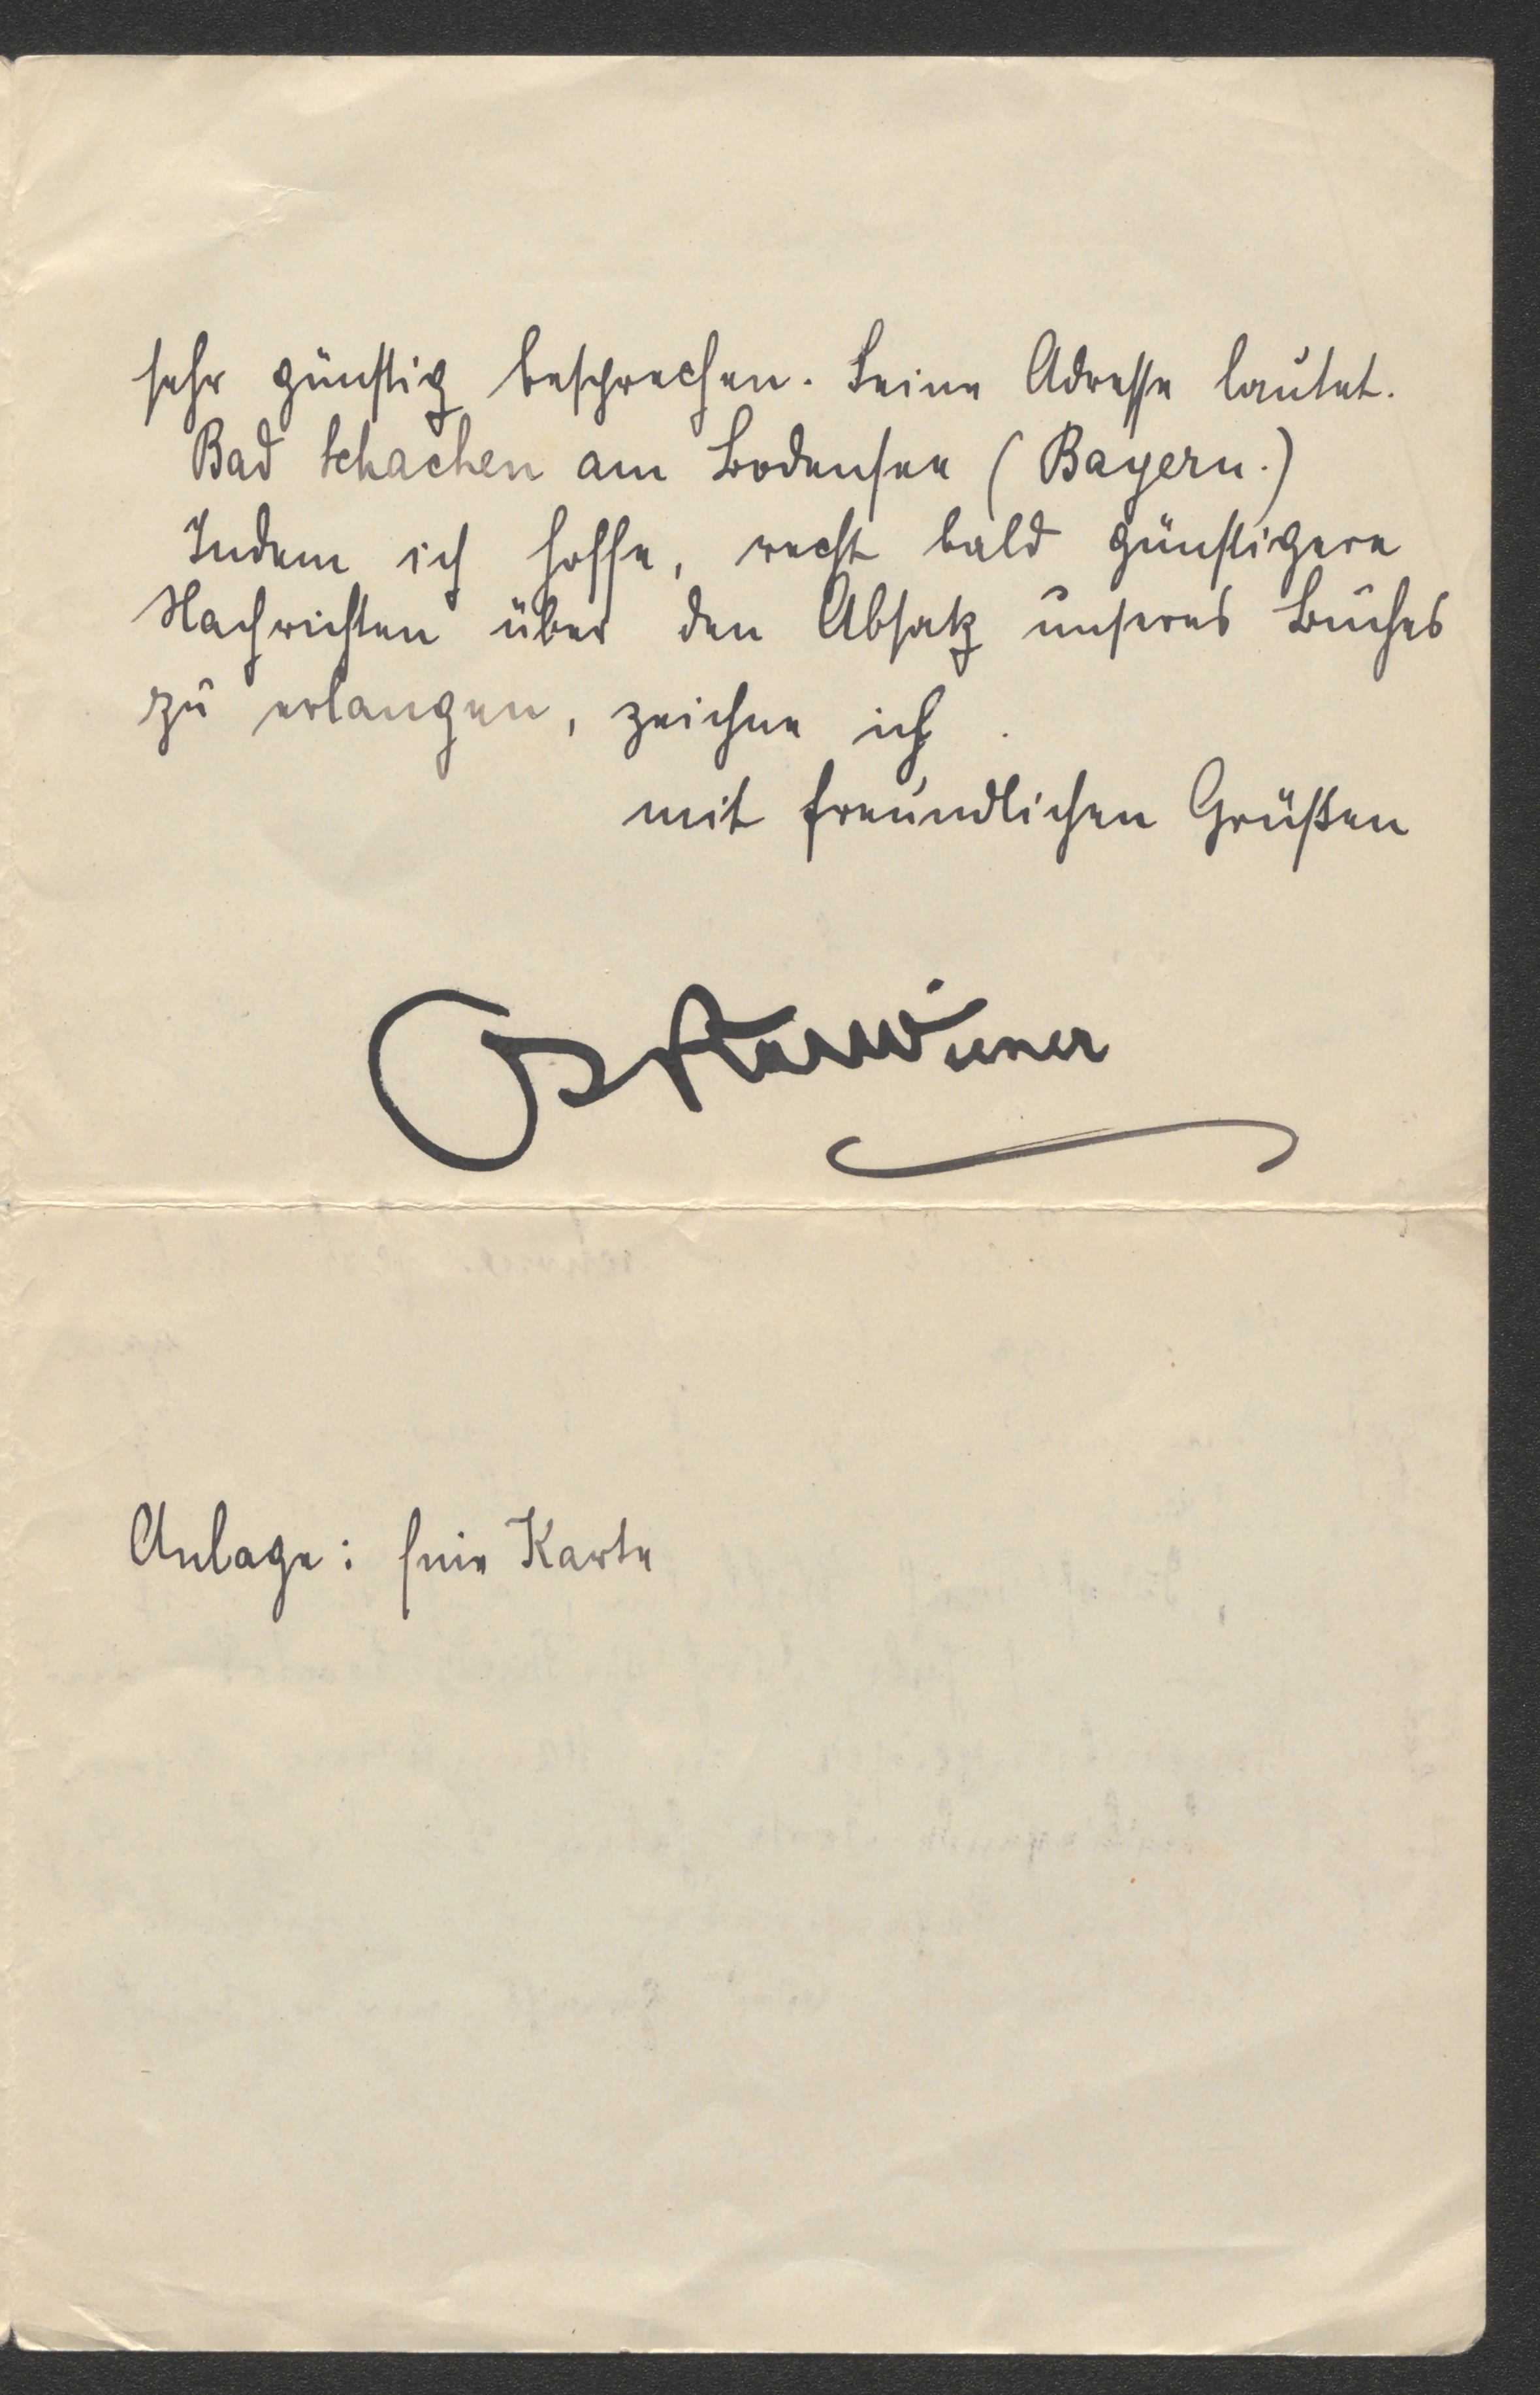 sehr günstig besprechen. Seine Adresse lautet.
Bad Schachen am Bodensee (Bayern.)
Indem ich hoffe, recht bald günstigere
Nachrichten über den Absatz unseres Buches
zu erlangen, zeichne ich
mit freundlichen Grüßen
Oskar Wiener
Anlage: Eine Karte